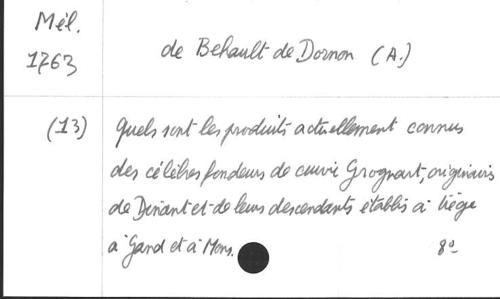 Mél.
1763
de Behault de Dornon (A.)
(13) Quels sont les produits actuellement connus
des célèbres fondeurs de cuivre Grognart, originaires
de Dinant et de leurs descendants établis à Liège
à Gand et à Mons.
8°